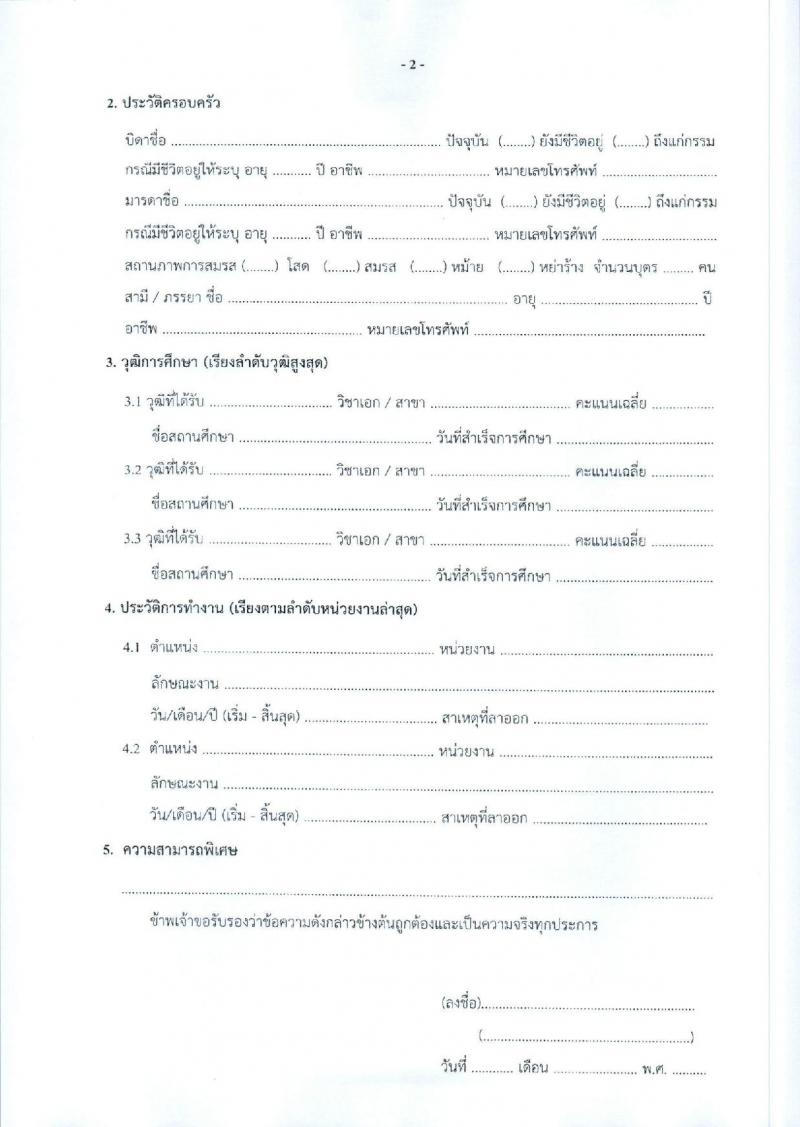 - 2 -
2. ประวัติครอบครัว
บิดาชื่อ .................................................................. ปัจจุบัน (........) ยังมีชีวิตอยู่ (........) ถึงแก่กรรม
กรณีมีชีวิตอยู่ให้ระบุ อายุ ........... ปี อาชีพ .............................. หมายเลขโทรศัพท์ ............................
มารดาชื่อ ............................................................... ปัจจุบัน (........) ยังมีชีวิตอยู่ (........) ถึงแก่กรรม
กรณีมีชีวิตอยู่ให้ระบุ อายุ ........... ปี อาชีพ .............................. หมายเลขโทรศัพท์ ............................
สถานภาพการสมรส (........) โสด (........) สมรส (........) หม้าย (........) หย่าร้าง จำนวนบุตร ........ คน
สามี / ภรรยา ชื่อ .................................................................... อายุ ...................................... ปี
อาชีพ ................................................. หมายเลขโทรศัพท์ .........................................................
3. วุฒิการศึกษา (เรียงลำดับวุฒิสูงสุด)
3.1 วุฒิที่ได้รับ .............................. วิชาเอก / สาขา .................................. คะแนนเฉลี่ย ...............
ชื่อสถานศึกษา ............................................... วันที่สำเร็จการศึกษา ......................................
3.2 วุฒิที่ได้รับ .............................. วิชาเอก / สาขา .................................. คะแนนเฉลี่ย ...............
ชื่อสถานศึกษา ............................................... วันที่สำเร็จการศึกษา ......................................
3.3 วุฒิที่ได้รับ .............................. วิชาเอก / สาขา .................................. คะแนนเฉลี่ย ...............
ชื่อสถานศึกษา ............................................... วันที่สำเร็จการศึกษา ......................................
4. ประวัติการทำงาน (เรียงตามลำดับหน่วยงานล่าสุด)
4.1 ตำแหน่ง ......................................................... หน่วยงาน ....................................................
ลักษณะงาน ........................................................................................................................
วัน/เดือน/ปี (เริ่ม - สิ้นสุด) ................................ สาเหตุที่ลาออก ...........................................
4.2 ตำแหน่ง ......................................................... หน่วยงาน ....................................................
ลักษณะงาน ........................................................................................................................
วัน/เดือน/ปี (เริ่ม - สิ้นสุด) ................................ สาเหตุที่ลาออก ...........................................
5. ความสามารถพิเศษ
................................................................................................................................................
ข้าพเจ้าขอรับรองว่าข้อความดังกล่าวข้างต้นถูกต้องและเป็นความจริงทุกประการ
(ลงชื่อ)....................................................
(...................................................)
วันที่ ........... เดือน ..................... พ.ศ. .........